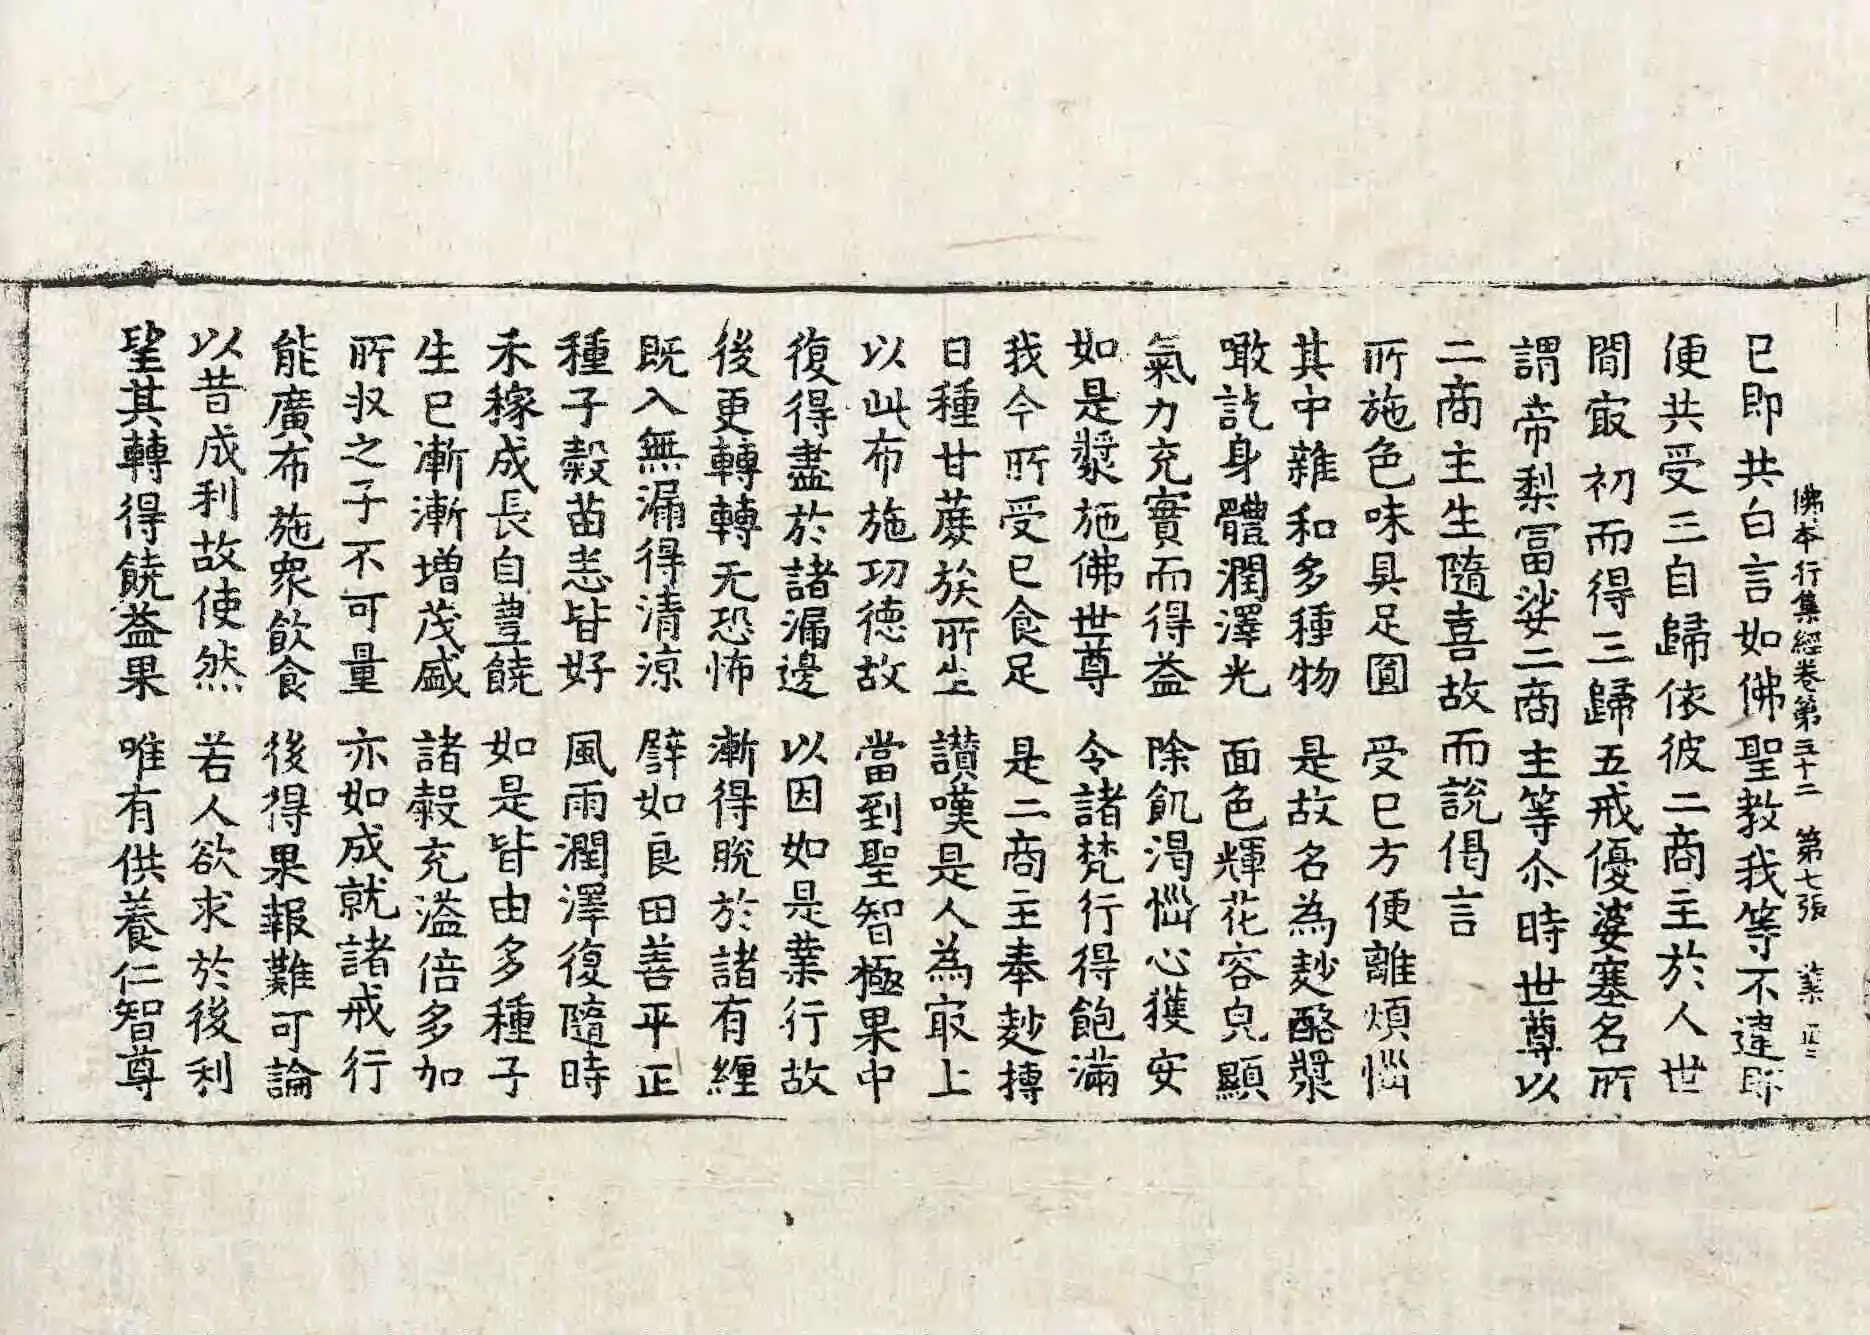 佛本行集經卷第三十二　第七張　業
已即共白言如佛聖教我等不違即
便共受三自歸依彼二商主於人世
閒㝡初而得三歸五戒優婆塞名所
謂帝梨冨娑二商主等尒時世尊以
二商主生隨喜故而說偈言
所施色味具足圓　受已方便離煩惱
其中雜和多種物　是故名為麨酪漿
噉訖身體潤澤光　面色輝花容皃顯
氣力充實而得益　除飢渴惱心獲安
如是漿施佛世尊　令諸梵行得飽滿
我今所受已食足　是二商主奉麨摶
日種甘蔗族所生　讃嘆是人為㝡上
以此布施功德故　當到聖智極果中
復得盡於諸漏邊　以因如是業行故
後更轉轉无恐怖　漸得脫於諸有纏
既入無漏得清涼　譬如良田善平正
種子穀苗悉皆好　風雨潤澤復隨時
禾稼成長自豊饒　如是皆由多種子
生已漸漸增茂盛　諸穀充溢倍多加
所収之子不可量　亦如成就諸戒行
能廣布施衆飲食　後得果報難可論
以昔成利故使然　若人欲求於後利
望其轉得饒益果　唯有供養仁智尊